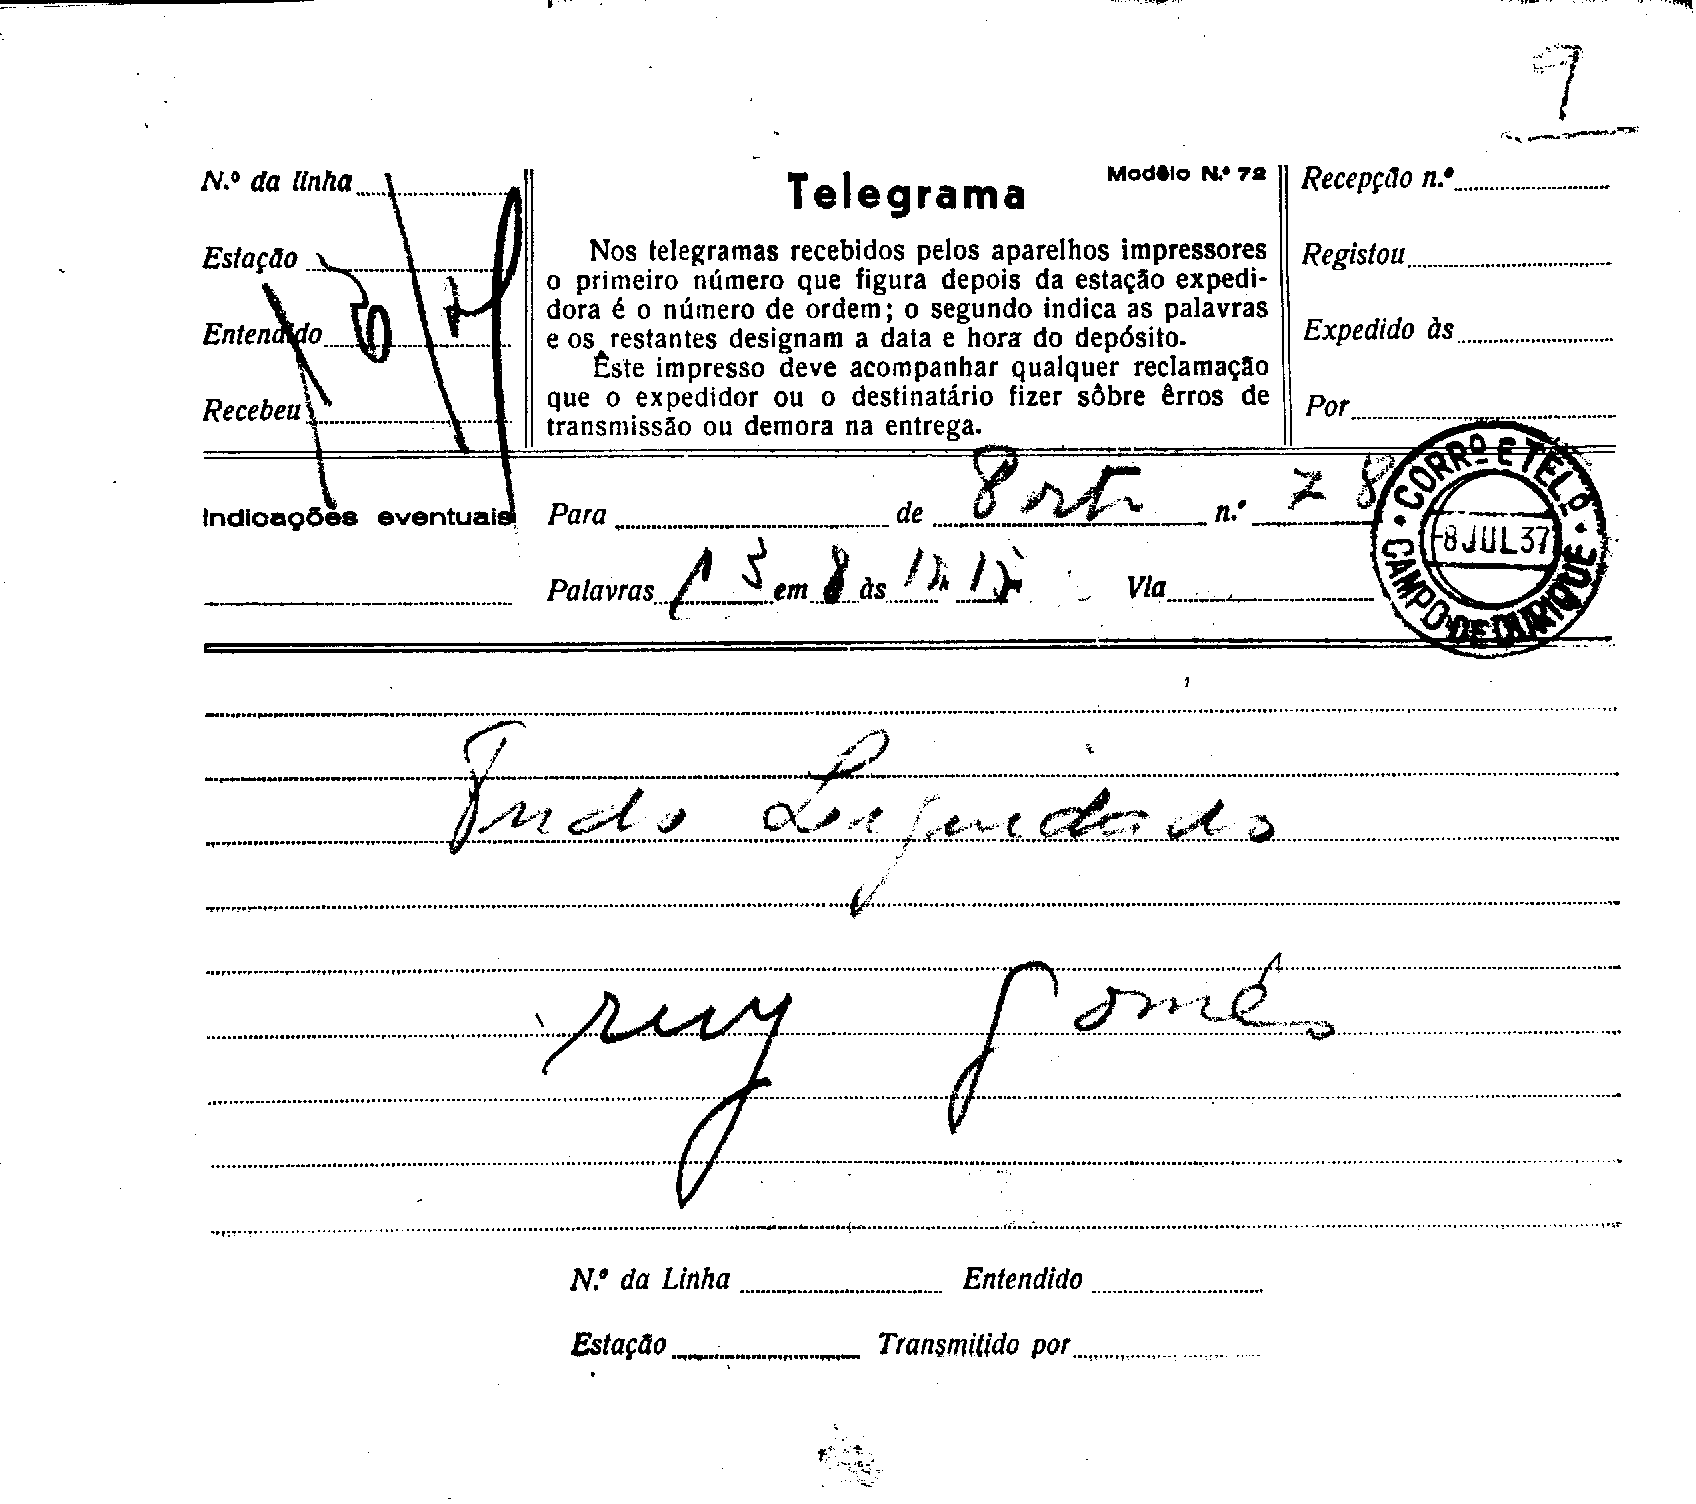 7
N.º da linha
Estação
Entendido
Recebeu
Telegrama
Modêlo N.º 72
Nos telegramas recebidos pelos aparelhos impressores
o primeiro número que figura depois da estação expedi-
dora é o número de ordem; o segundo indica as palavras
e os restantes designam a data e hora do depósito.
Êste impresso deve acompanhar qualquer reclamação
que o expedidor ou o destinatário fizer sôbre êrros de
transmissão ou demora na entrega.
Recepção n.º
Registou
Expedido às
Por
Indicações eventuais
Para de Porto n.º 78
Palavras 13 em 8 às Via
CORRº E TELº
8 JUL 37
CAMPO DE OURIQUE
Tudo Liquidado
ruy gomes
N.º da Linha Entendido
Estação Transmitido por